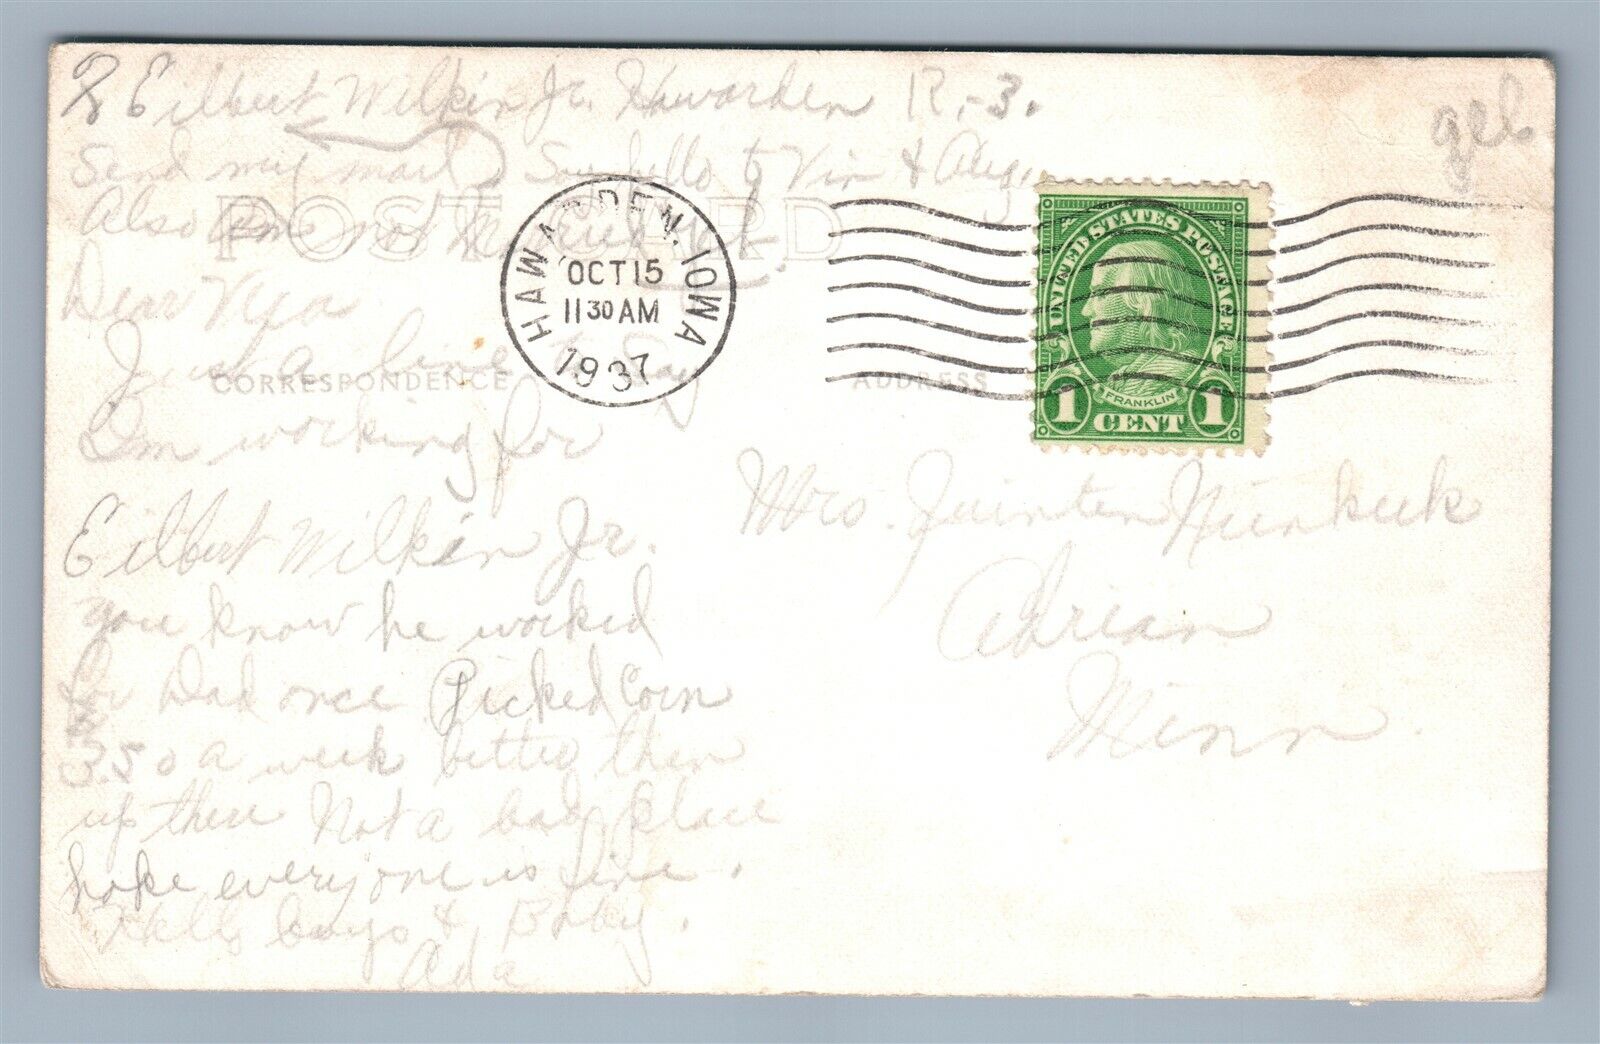 % Eilbert Wilkin Jr. Hawarden R-3.
Send my mail Say hello to Vin & Aug.
Also am not married yet
POST CARD
HAWARDEN, IOWA
OCT 15
11 30 AM
1937
UNITED STATES POSTAGE
FRANKLIN
1 CENT 1
Dear Vera
Just a line to Say
CORRESPONDENCE
ADDRESS
Im working for
Eilbert Wilkin Jr.
you know he worked
for Dad once Picked Corn
3.50 a week better then
up there Not a bad place
hope everyone is fine.
Hello boys & Baby.
Ada
Mrs. Quinten
Adrian
Minn.